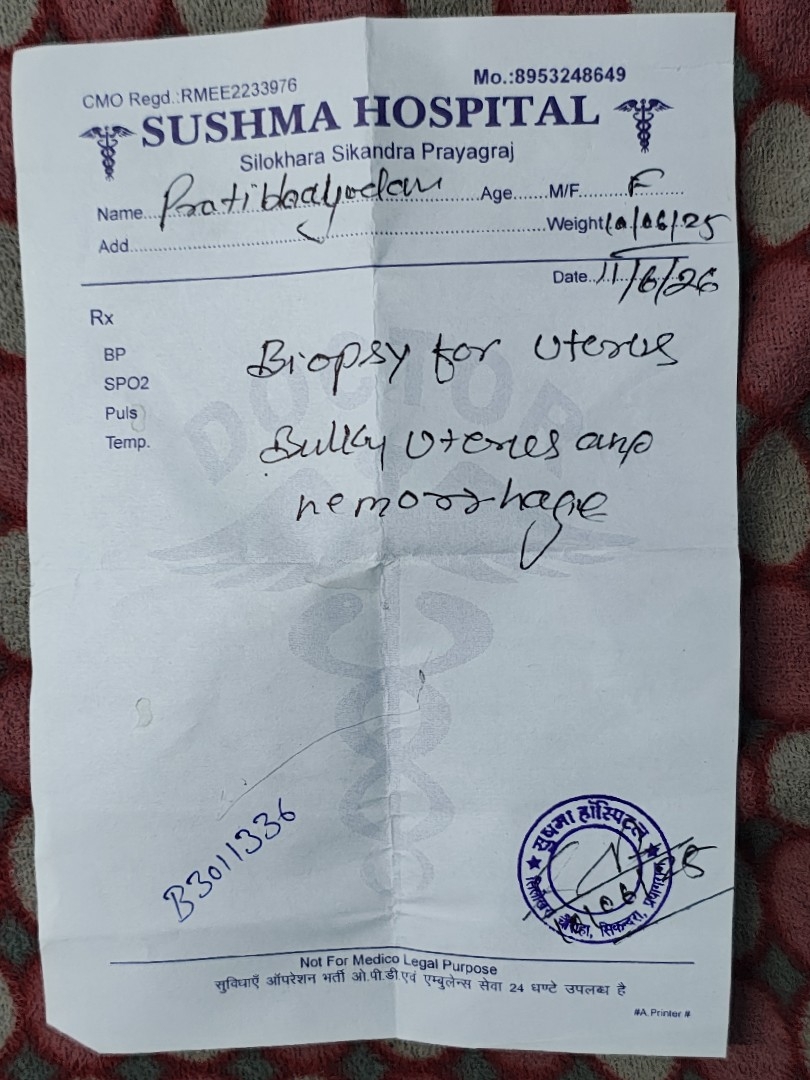 CMO Regd.:RMEE2233976
Mo.:8953248649
SUSHMA HOSPITAL
Silokhara Sikandra Prayagraj
Name....Pratibhayadav....Age......M/F....F....
Add....Weight 10/06/25
Date..11/6/26
Rx
BP
SPO2
Puls
Temp.
DOCTOR
Biopsy for Uterus
Bulky Uterus and
hemorrhage
B3011336
सुषमा हॉस्पिटल
चौराहा, सिकन्दरा, प्रयागराज
Not For Medico Legal Purpose
सुविधाएँ ऑपरेशन भर्ती ओ.पी.डी एवं एम्बुलेन्स सेवा 24 घण्टे उपलब्ध है
#A.Printer #